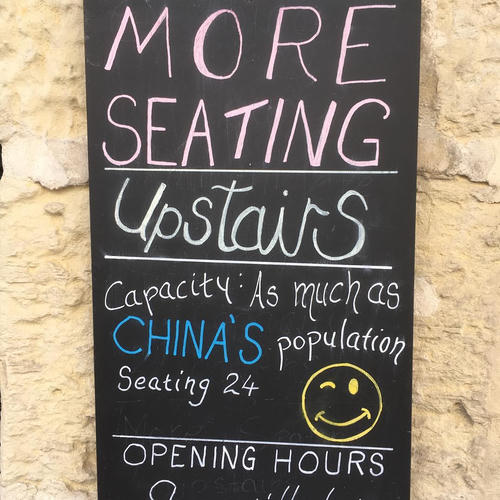 MORE
SEATING
Upstairs
Capacity: As much as
CHINA'S population
Seating 24
OPENING HOURS